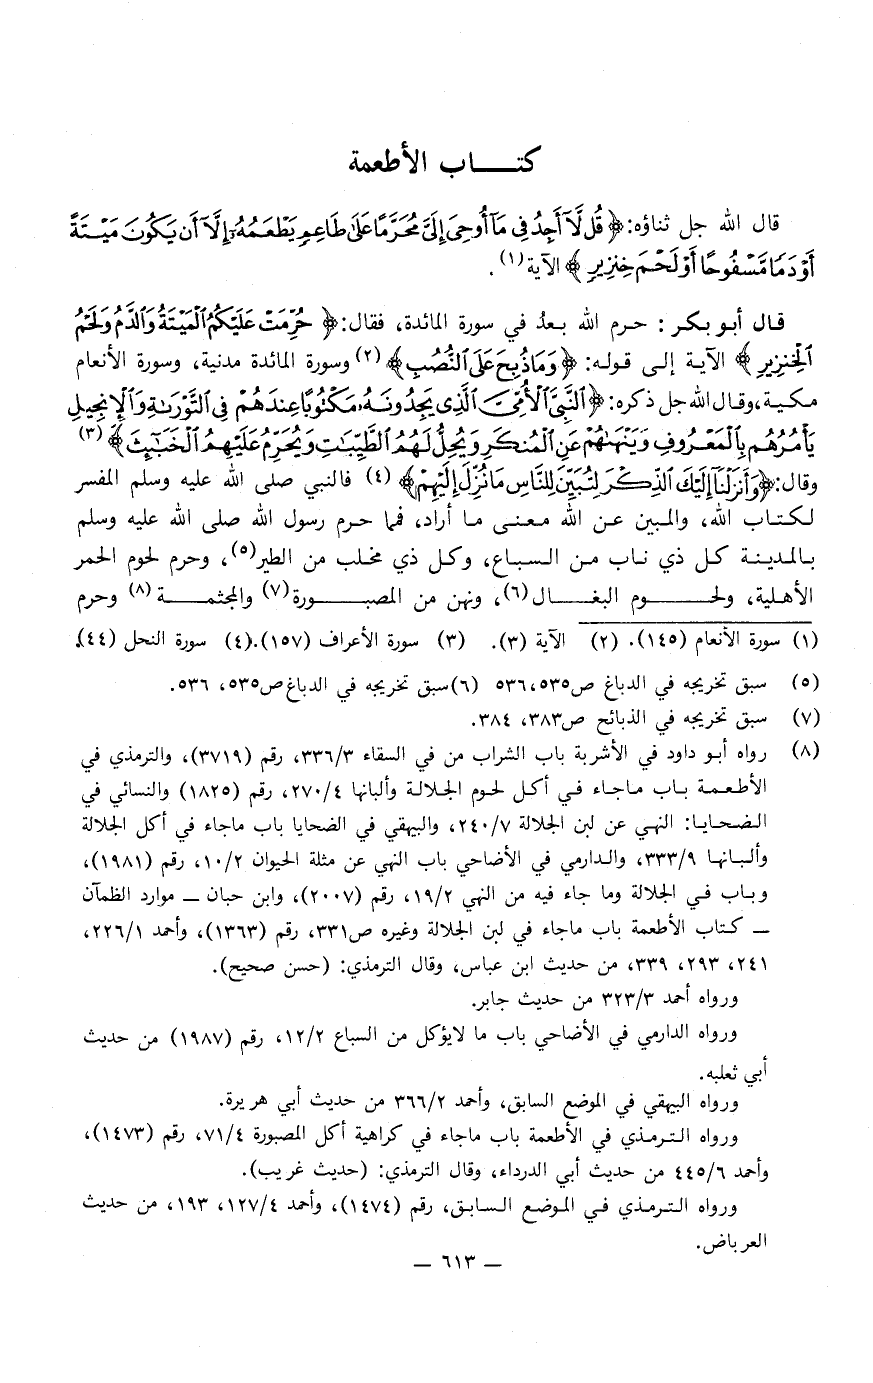 كتـــاب الأطعمة
قال الله جل ثناؤه: ﴿ قُل لَّآ أَجِدُ فِى مَآ أُوحِىَ إِلَىَّ مُحَرَّمًا عَلَىٰ طَاعِمٍ يَطْعَمُهُۥٓ إِلَّآ أَن يَكُونَ مَيْتَةً
أَوْ دَمًا مَّسْفُوحًا أَوْ لَحْمَ خِنزِيرٍ ﴾ الآية(١).
قال أبو بكر: حرم الله بعدُ في سورة المائدة، فقال: ﴿ حُرِّمَتْ عَلَيْكُمُ ٱلْمَيْتَةُ وَٱلدَّمُ وَلَحْمُ
ٱلْخِنزِيرِ ﴾ الآية إلى قوله: ﴿ وَمَا ذُبِحَ عَلَى ٱلنُّصُبِ ﴾(٢) وسورة المائدة مدنية، وسورة الأنعام
مكية، وقال الله جل ذكره: ﴿ ٱلنَّبِىَّ ٱلْأُمِّىَّ ٱلَّذِى يَجِدُونَهُۥ مَكْتُوبًا عِندَهُمْ فِى ٱلتَّوْرَىٰةِ وَٱلْإِنجِيلِ
يَأْمُرُهُم بِٱلْمَعْرُوفِ وَيَنْهَىٰهُمْ عَنِ ٱلْمُنكَرِ وَيُحِلُّ لَهُمُ ٱلطَّيِّبَٰتِ وَيُحَرِّمُ عَلَيْهِمُ ٱلْخَبَٰٓئِثَ ﴾(٣)
وقال: ﴿ وَأَنزَلْنَآ إِلَيْكَ ٱلذِّكْرَ لِتُبَيِّنَ لِلنَّاسِ مَا نُزِّلَ إِلَيْهِمْ ﴾ (٤) فالنبي صلى الله عليه وسلم المفسر
لكتاب الله، والمبين عن الله معنى ما أراد، فما حرم رسول الله صلى الله عليه وسلم
بالمدينة كل ذي ناب من السباع، وكل ذي مخلب من الطير(٥)، وحرم لحوم الحمر
الأهلية، ولحـــوم البغـــال(٦)، ونهى من المصبـــورة(٧) والمجثمـــة(٨) وحرم
(١) سورة الأنعام (١٤٥). (٢) الآية (٣). (٣) سورة الأعراف (١٥٧).(٤) سورة النحل (٤٤).
(٥) سبق تخريجه في الدباغ ص٥٣٥، ٥٣٦ (٦)سبق تخريجه في الدباغ ص٥٣٥، ٥٣٦.
(٧) سبق تخريجه في الذبائح ص٣٨٣، ٣٨٤.
(٨) رواه أبو داود في الأشربة باب الشراب من في السقاء ٣/‏٣٣٦، رقم (٣٧١٩)، والترمذي في
الأطعمة باب ماجاء في أكل لحوم الجلالة وألبانها ٤/‏٢٧٠، رقم (١٨٢٥) والنسائي في
الضحايا: النهي عن لبن الجلالة ٧/‏٢٤٠، والبيهقي في الضحايا باب ماجاء في أكل الجلالة
وألبانها ٩/‏٣٣٣، والدارمي في الأضاحي باب النهي عن مثلة الحيوان ٢/‏١٠، رقم (١٩٨١)،
وباب في الجلالة وما جاء فيه من النهي ٢/‏١٩، رقم (٢٠٠٧)، وابن حبان ــ موارد الظمآن
ــ كتاب الأطعمة باب ماجاء في لبن الجلالة وغيره ص٣٣١، رقم (١٣٦٣)، وأحمد ١/‏٢٢٦،
٢٤١، ٢٩٣، ٣٣٩، من حديث ابن عباس، وقال الترمذي: (حسن صحيح).
ورواه أحمد ٣/‏٣٢٣ من حديث جابر.
ورواه الدارمي في الأضاحي باب ما لايؤكل من السباع ٢/‏١٢، رقم (١٩٨٧) من حديث
أبي ثعلبه.
ورواه البيهقي في الموضع السابق، وأحمد ٢/‏٣٦٦ من حديث أبي هريرة.
ورواه الترمذي في الأطعمة باب ماجاء في كراهية أكل المصبورة ٤/‏٧١، رقم (١٤٧٣)،
وأحمد ٦/‏٤٤٥ من حديث أبي الدرداء، وقال الترمذي: (حديث غريب).
ورواه الترمذي في الموضع السابق، رقم (١٤٧٤)، وأحمد ٤/‏١٢٧، ١٩٣، من حديث
العرباض.
ــ ٦١٣ ــ